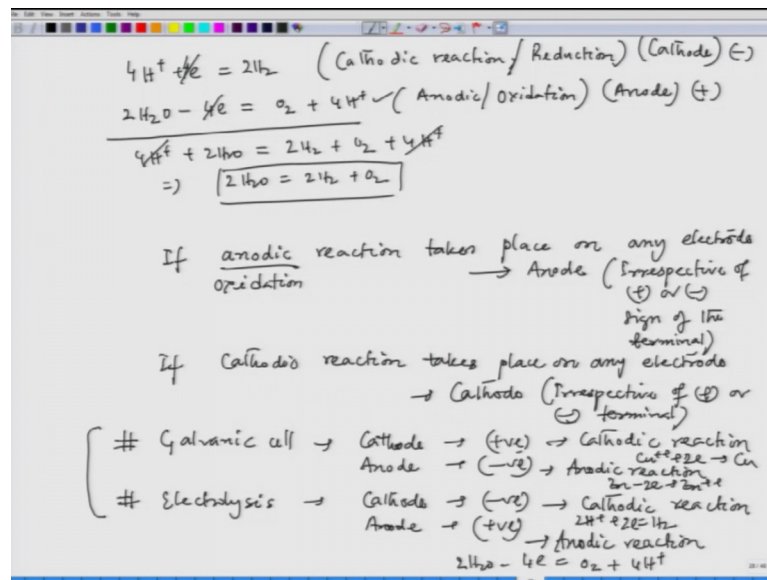 File Edit View Insert Actions Tools Help
4H⁺ + 4e = 2H₂ (Cathodic reaction / Reduction) (Cathode) (-)
2H₂O - 4e = O₂ + 4H⁺ (Anodic/Oxidation) (Anode) (+)
4H⁺ + 2H₂O = 2H₂ + O₂ + 4H⁺
=) 2H₂O = 2H₂ + O₂
If anodic reaction takes place on any electrode
oxidation → Anode (Irrespective of
(+) or (-)
sign of the
terminal)
If Cathodic reaction takes place on any electrode
→ Cathode (Irrespective of (+) or
(-) terminal)
# Galvanic cell → Cathode → (+ve) → Cathodic reaction
Cu⁺⁺ + 2e → Cu
Anode → (-ve) → Anodic reaction
Zn - 2e → Zn⁺⁺
# Electrolysis → Cathode → (-ve) → Cathodic reaction
2H⁺ + 2e = H₂
Anode → (+ve)
→ Anodic reaction
2H₂O - 4e = O₂ + 4H⁺